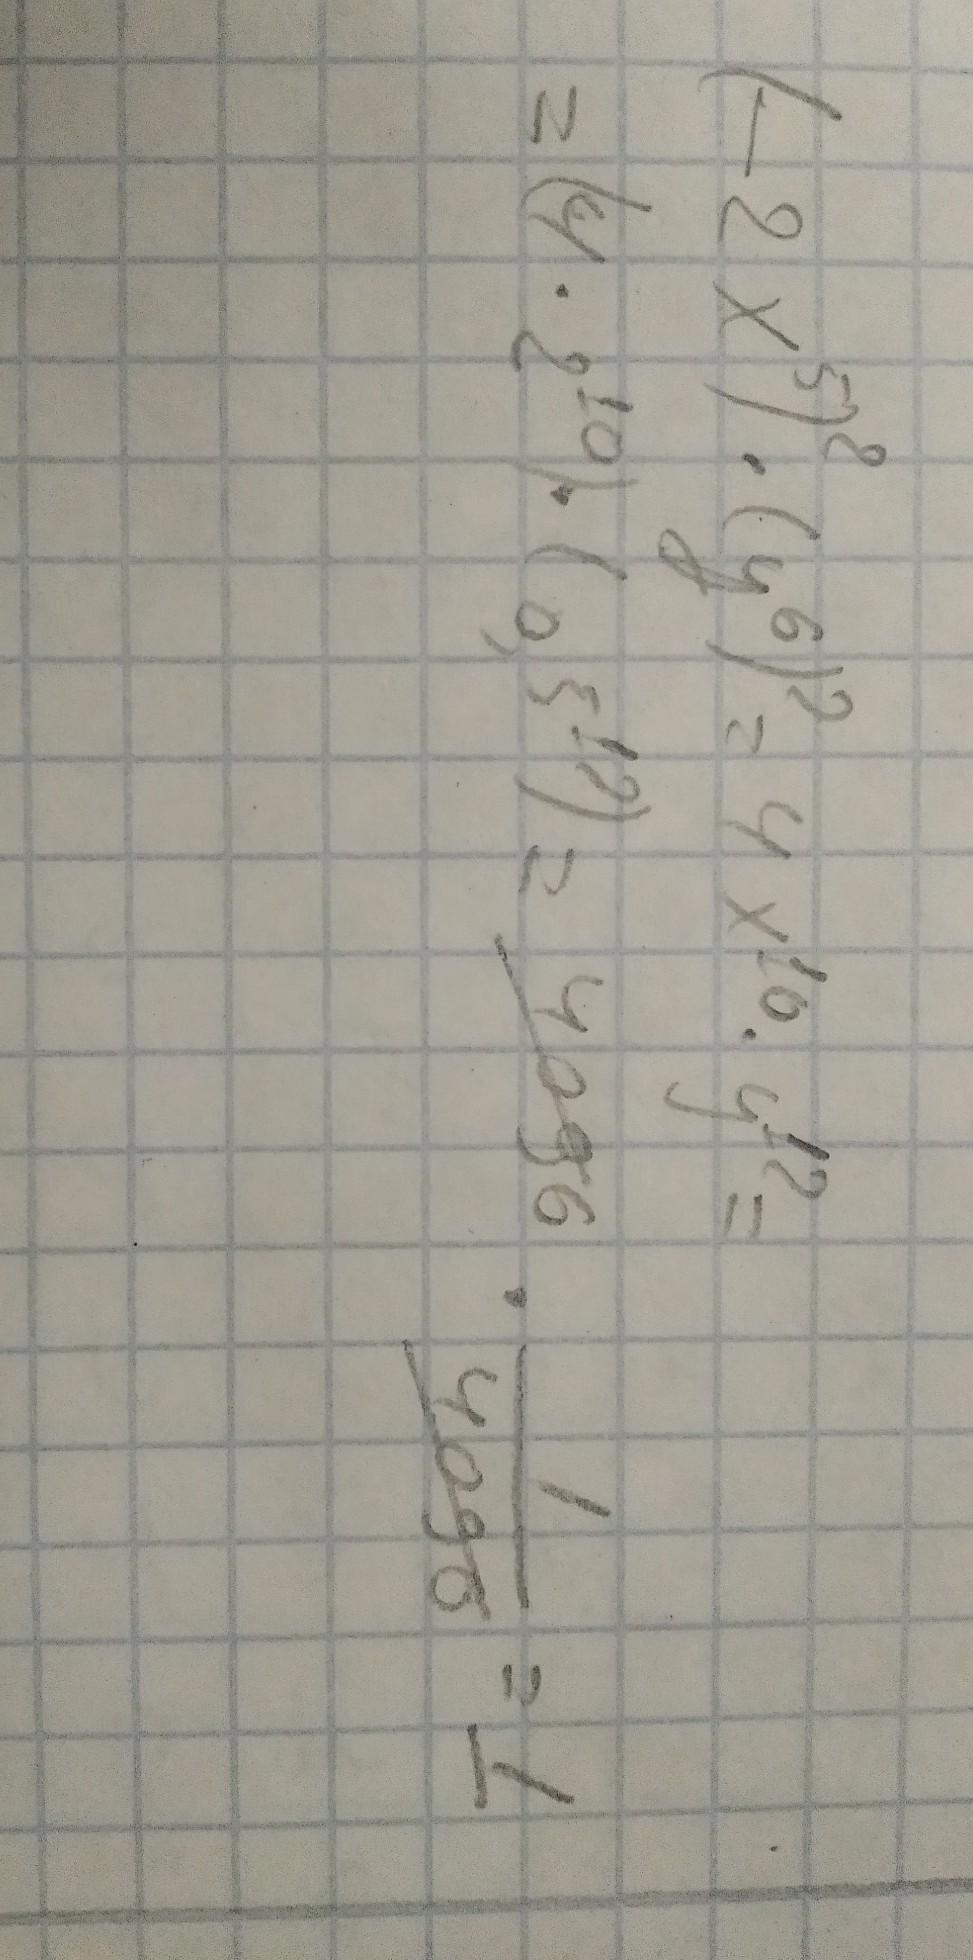 (-2x⁵)² · (y⁶)² = 4x¹⁰ · y¹² =
= (4 · 2¹⁰) · (0,5¹²) = 4096 · 1/4096 = 1